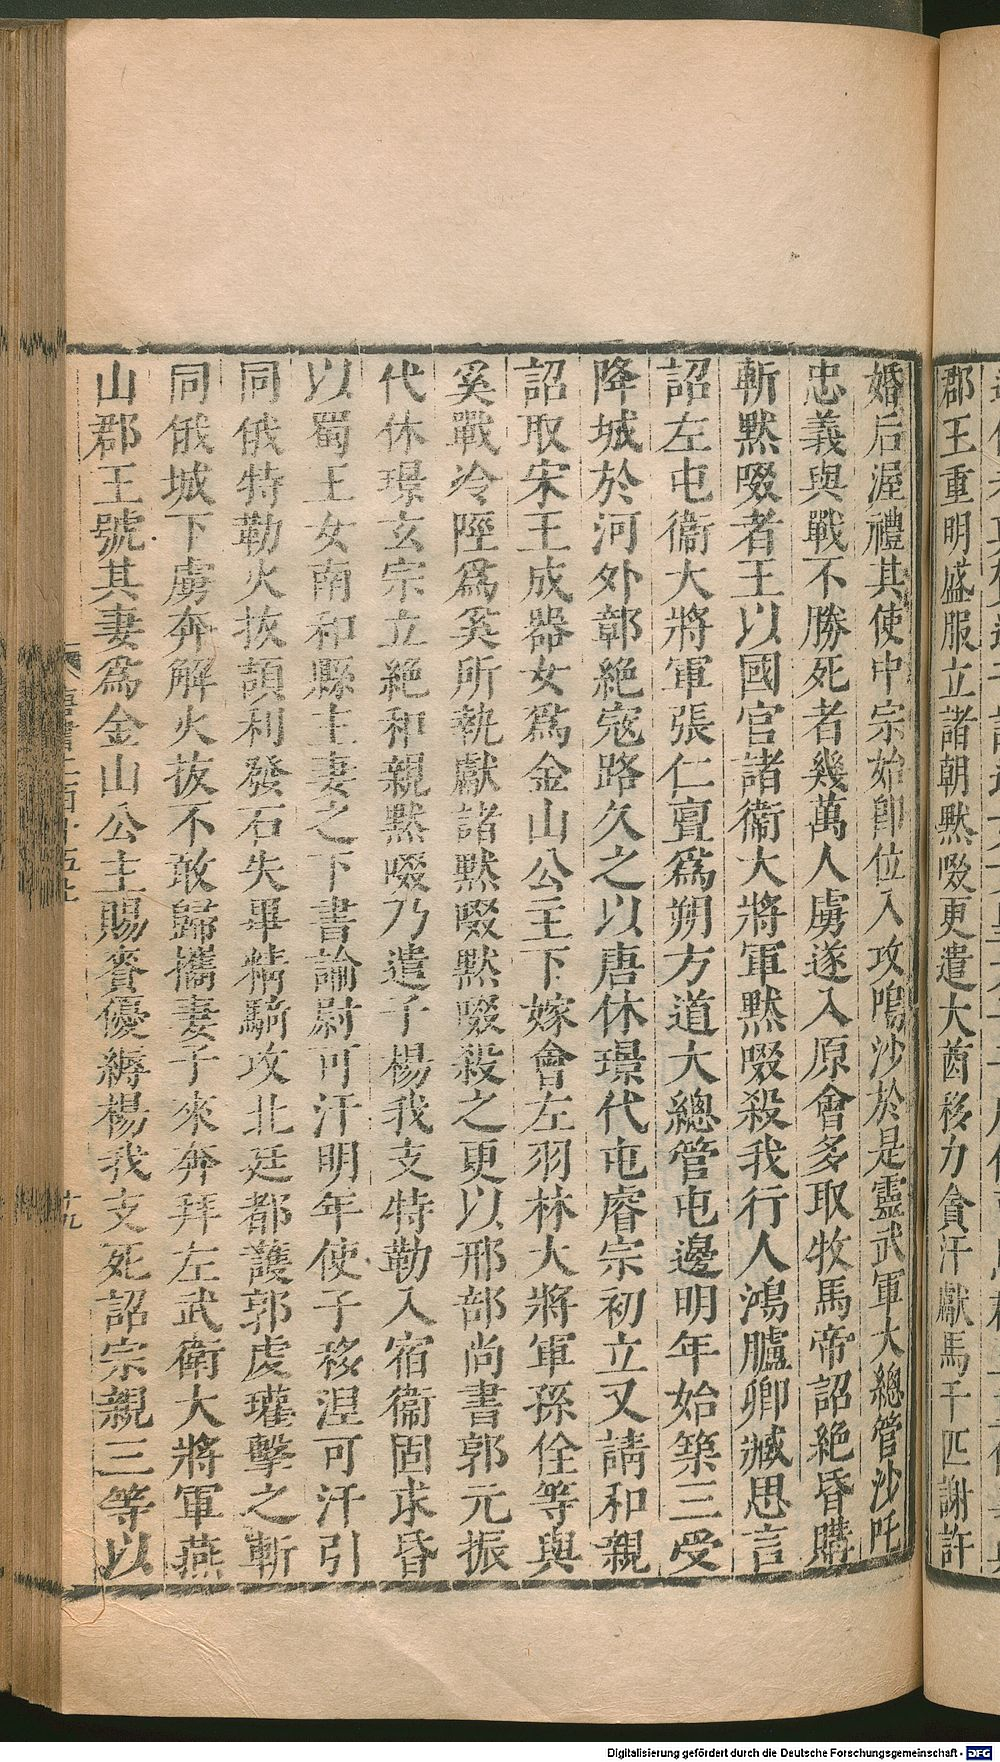 郡王重明盛服立諸朝默啜更遣大酋移力貪汗獻馬千匹謝許
婚后渥禮其使中宗始卽位入攻鳴沙於是靈武軍大總管沙吒
忠義與戰不勝死者幾萬人虜遂入原會多取牧馬帝詔絕昏購
斬默啜者王以國官諸衞大將軍默啜殺我行人鴻臚卿臧思言
詔左屯衞大將軍張仁亶爲朔方道大總管屯邊明年始築三受
降城於河外鄣絕寇路久之以唐休璟代屯睿宗初立又請和親
詔取宋王成器女爲金山公主下嫁會左羽林大將軍孫佺等與
奚戰冷陘爲奚所執獻諸默啜默啜殺之更以邢部尚書郭元振
代休璟玄宗立絕和親默啜乃遣子楊我支特勒入宿衞固求昏
以蜀王女南和縣主妻之下書諭尉可汗明年使子移涅可汗引
同俄特勒火拔頡利發石失畢精騎攻北廷都護郭虔瓘擊之斬
同俄城下虜奔解火拔不敢歸攜妻子來奔拜左武衛大將軍燕
山郡王號其妻爲金山公主賜賚優縟楊我支死詔宗親三等以
唐書二百十五上
十九
Digitalisierung gefördert durch die Deutsche Forschungsgemeinschaft - DFG